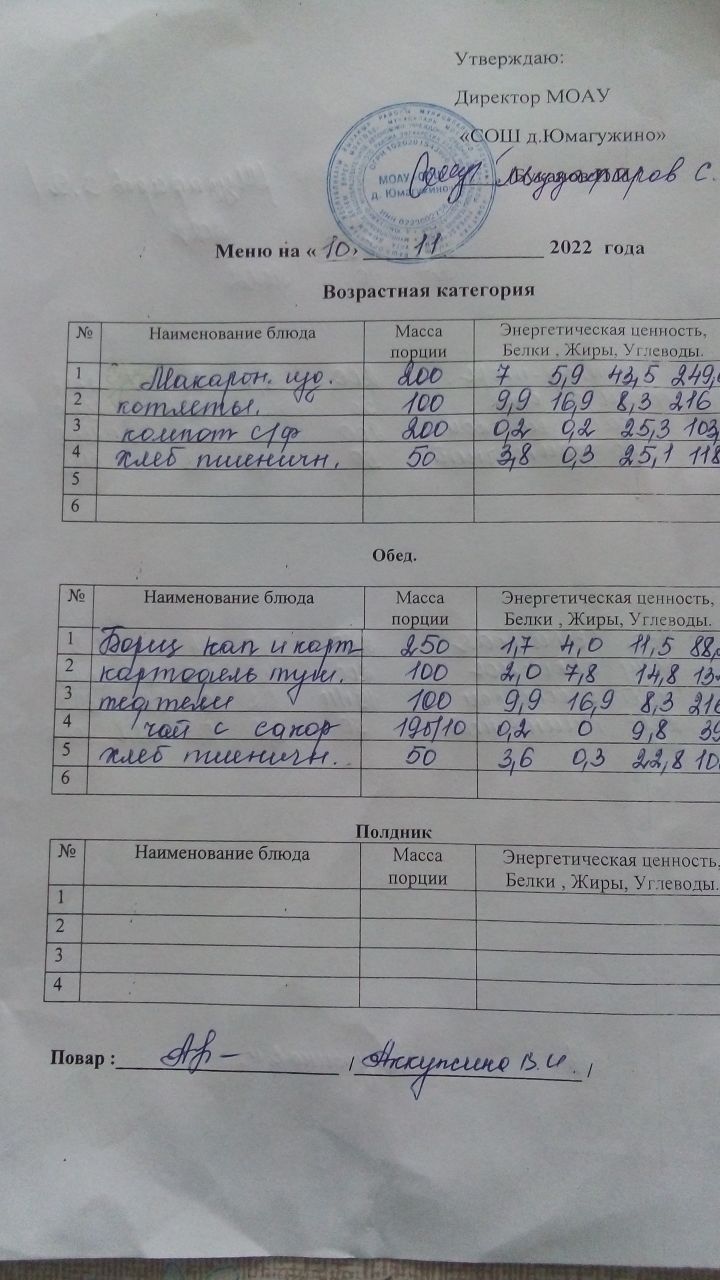 Утверждаю:
Директор МОАУ
«СОШ д.Юмагужино»
Музафаров С.
МОАУ СОШ
д. Юмагужино
Меню на « 10 » 11 2022 года
Возрастная категория
№ Наименование блюда Масса порции Энергетическая ценность, Белки , Жиры, Углеводы.
1 Макарон. изд. 200 7 5,9 43,5 249,
2 котлеты. 100 9,9 16,9 8,3 216
3 компот с/ф 200 0,2 0,2 25,3 103,
4 хлеб пшеничн. 50 3,8 0,3 25,1 118
5
6
Обед.
№ Наименование блюда Масса порции Энергетическая ценность, Белки , Жиры, Углеводы.
1 Борщ кап и карт 250 1,7 4,0 11,5 88,
2 картофель туш. 100 2,0 7,8 14,8 13
3 тефтели 100 9,9 16,9 8,3 216
4 чай с сахар 195/10 0,2 0 9,8 39
5 хлеб пшеничн. 50 3,6 0,3 22,8 10
6
Полдник
№ Наименование блюда Масса порции Энергетическая ценность, Белки , Жиры, Углеводы.
1
2
3
4
Повар : / Аккужина В.И. /